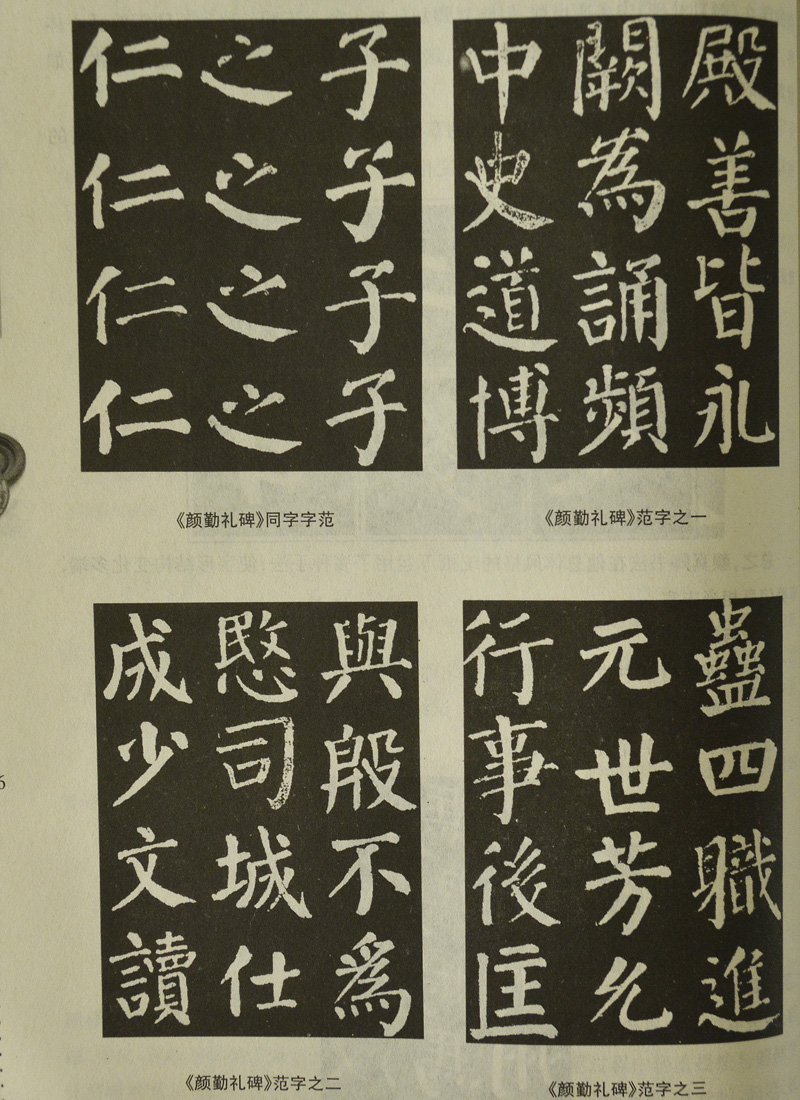 殿善皆永
闕為誦頻
中史道博
《颜勤礼碑》范字之一
子子子子
之之之之
仁仁仁仁
《颜勤礼碑》同字字范
蠱四職進
元世芳允
行事後匡
《颜勤礼碑》范字之三
與殷不為
愍司城仕
成少文讀
《颜勤礼碑》范字之二
6